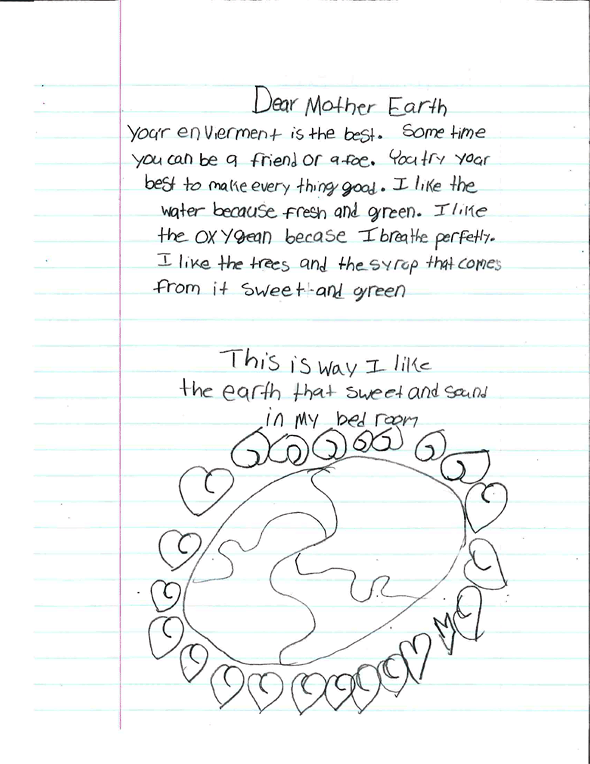 Dear Mother Earth
Your enVierment is the best. Some time
you can be a friend or a foe. You try your
best to make every thing good. I like the
water because fresh and green. I like
the oxygean becase I breathe perfetly.
I like the trees and the syrop that comes
from it sweet and green
This is way I like
the earth that sweet and sound
in my bed room